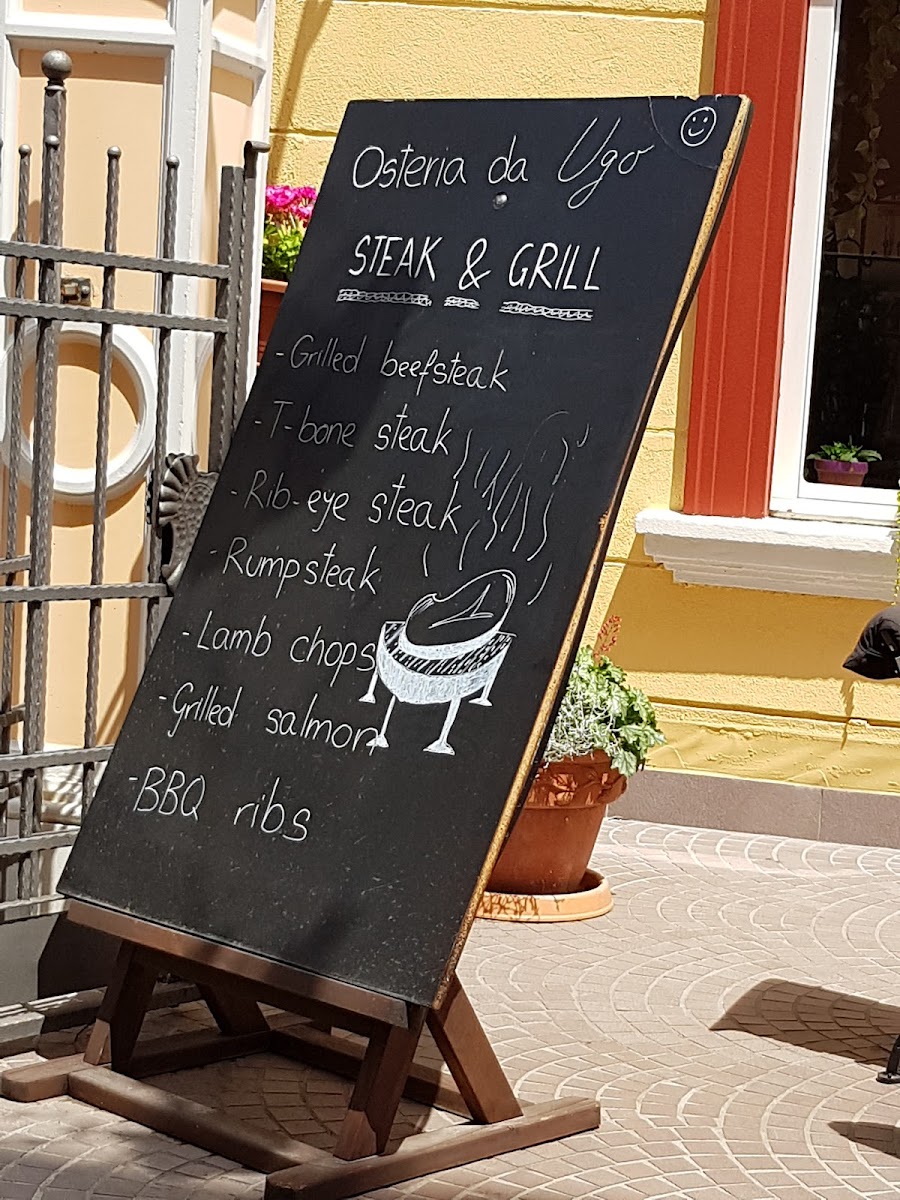 Osteria da Ugo
STEAK & GRILL
- Grilled beefsteak
- T-bone steak
- Rib-eye steak
- Rumpsteak
- Lamb chops
- Grilled salmon
- BBQ ribs